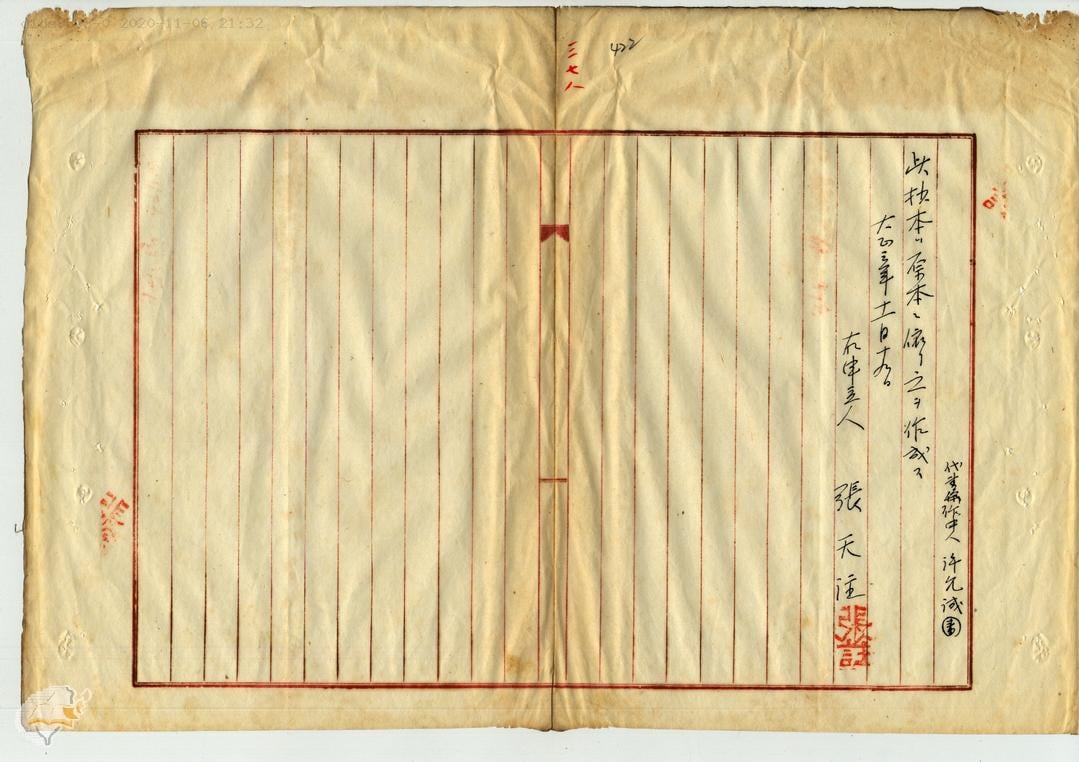 三七八
422
代書倂作中人 許允誠
此抄本ハ原本ニ依リ之ヲ作成ス
大正三年十一月十九日
右申立人 張天注
2020-11-06 21:32